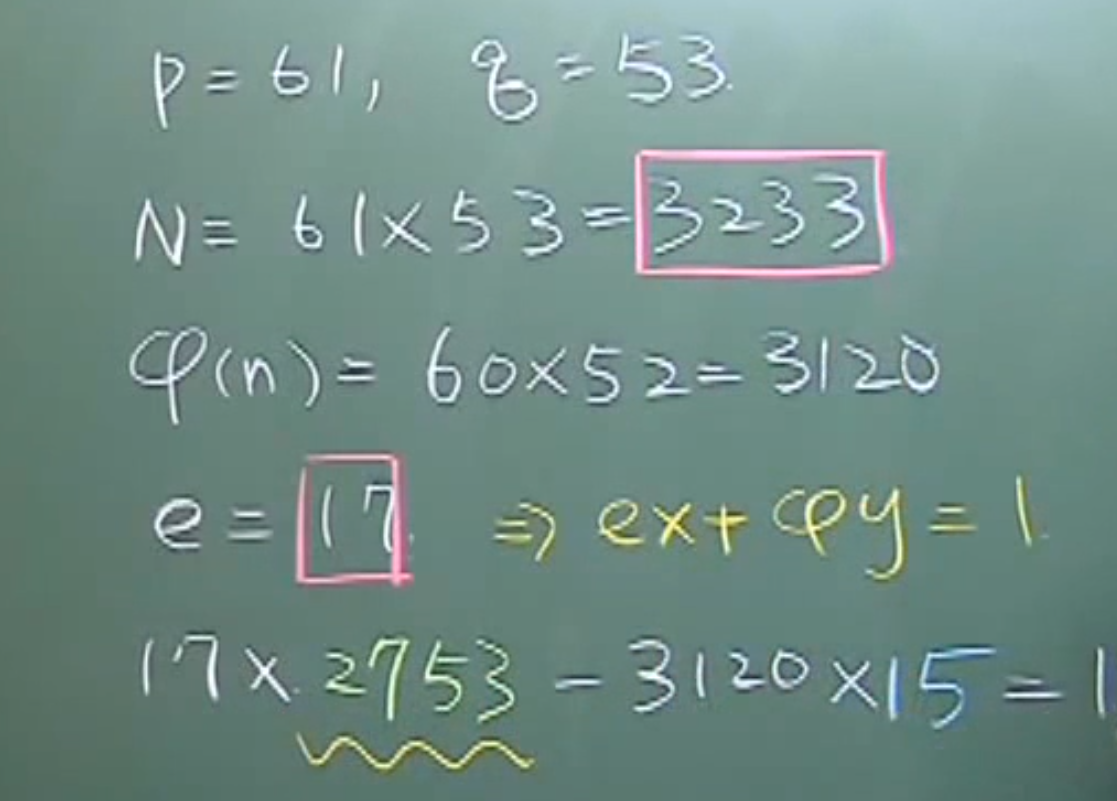 p = 61, q = 53.
N = 61 × 53 = 3233
φ(n) = 60 × 52 = 3120
e = 17. ⇒ ex + φy = 1.
17 × 2753 − 3120 × 15 = 1